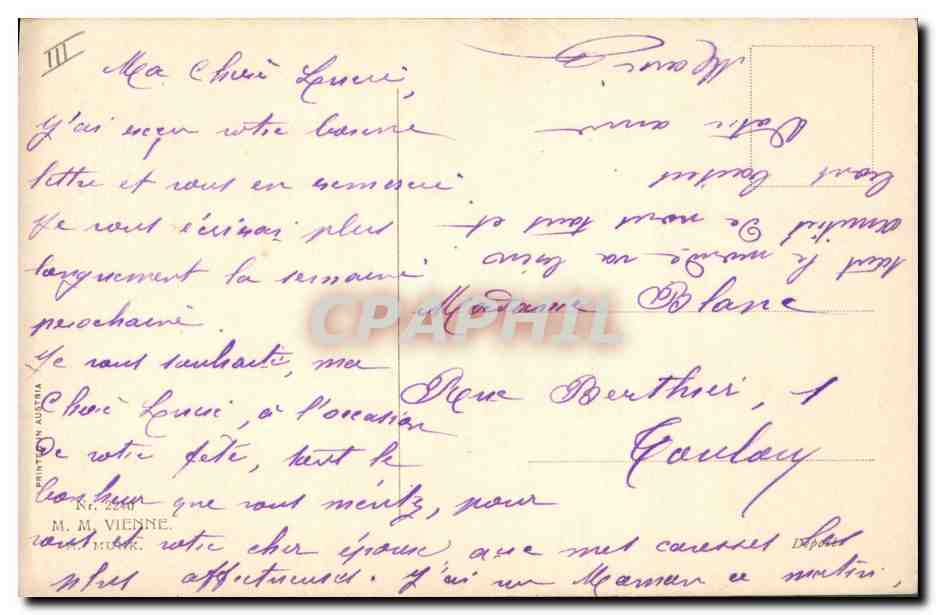 III
Ma Chère Lucie,
J'ai reçu votre bonne
lettre et vous en remercie
Je vous écrirai plus
longuement la semaine
prochaine.
Je vous souhaite, ma
Chère Lucie, à l'occasion
de votre fête, tout le
bonheur que vous méritez, pour
vous et votre cher époux que mes caresses les
plus affectueuses. J'ai vu Maman ce matin,
tout le monde va bien
amitiés de nous tous et
bons baisers
Votre amie
Marie
Madame Blanc
Rue Berthier, 1
Toulon
PRINTED IN AUSTRIA
Nr. 2240
M. M. VIENNE.
M. MUNK.
Déposé
CPAPHIL